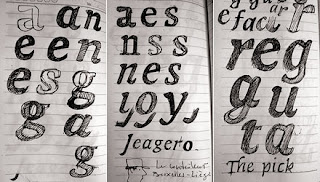 a an
e e n
e s g
g a
g
a e s
n s s
n e s
Jeagero.
Bruxelles - Liège
e fac r
r e g
g u
t a
The pick